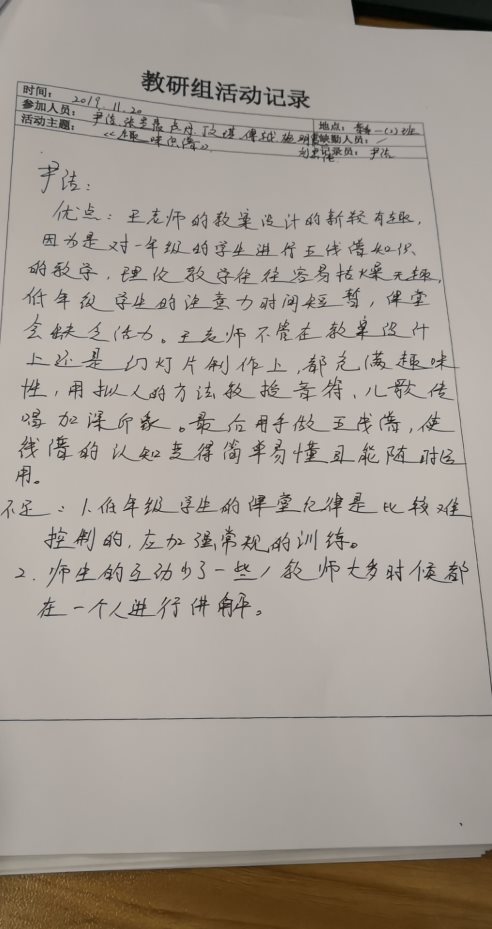 教研组活动记录
时间： 2019.11.20 地点： 一(2)班
参加人员： 尹洁 缺勤人员： /
活动主题： 《趣味识谱》 记录员： 尹洁
尹洁：
优点：王老师的教案设计的新颖有趣，
因为是对一年级的学生进行五线谱知识
的教学，理论教学往往容易枯燥无趣，
低年级学生的注意力时间短暂，课堂
会缺乏活力。王老师不管在教案设计
上还是幻灯片制作上，都充满趣味
性，用拟人的方法教授音符、儿歌传
唱加深印象。最后用手做五线谱，使
线谱的认知变得简单易懂且能随时运
用。
不足：1.低年级学生的课堂纪律是比较难
控制的，应加强常规的训练。
2.师生的互动少了一些，教师大多时候都
在一个人进行讲解。